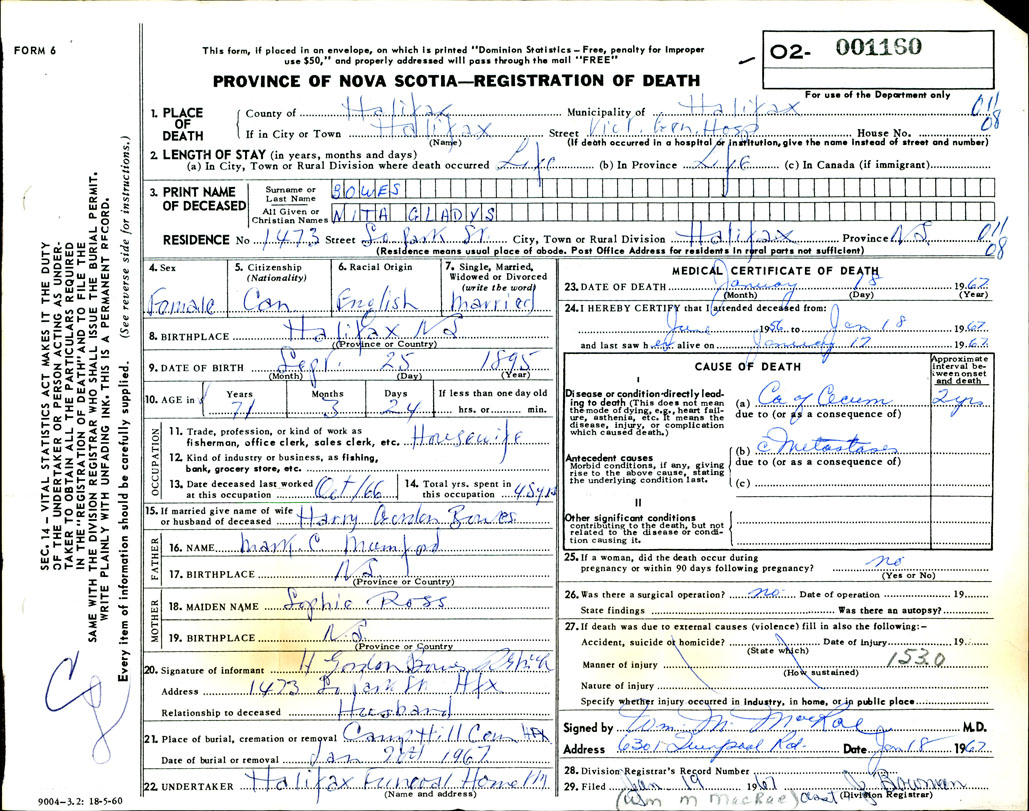 FORM 6
This form, if placed in an envelope, on which is printed "Dominion Statistics – Free, penalty for Improper
use $50," and properly addressed will pass through the mail "FREE"
PROVINCE OF NOVA SCOTIA—REGISTRATION OF DEATH
02- 001160
For use of the Department only
SEC. 14 – VITAL STATISTICS ACT MAKES IT THE DUTY
OF THE UNDERTAKER OR PERSON ACTING AS UNDER-
TAKER TO OBTAIN ALL THE PARTICULARS REQUIRED
IN THE "REGISTRATION OF DEATH" AND TO FILE THE
SAME WITH THE DIVISION REGISTRAR WHO SHALL ISSUE THE BURIAL PERMIT.
WRITE PLAINLY WITH UNFADING INK. THIS IS A PERMANENT RECORD.
Every item of information should be carefully supplied. (See reverse side for instructions.)
1. PLACE OF DEATH
County of Halifax Municipality of Halifax 011
If in City or Town Halifax Street Vict. Gen. Hosp House No. 08
(Name) (If death occurred in a hospital or institution, give the name instead of street and number)
2. LENGTH OF STAY (in years, months and days)
(a) In City, Town or Rural Division where death occurred Life (b) In Province Life (c) In Canada (if immigrant)
3. PRINT NAME OF DECEASED
Surname or Last Name BOWES
All Given or Christian Names NITA GLADYS
RESIDENCE No 1473 Street So Park St. City, Town or Rural Division Halifax Province N.S. 011 08
(Residence means usual place of abode. Post Office Address for residents in rural parts not sufficient)
4. Sex Female
5. Citizenship (Nationality) Can
6. Racial Origin English
7. Single, Married, Widowed or Divorced (write the word) Married
8. BIRTHPLACE Halifax N S
(Province or Country)
9. DATE OF BIRTH Sept. 25 1895
(Month) (Day) (Year)
10. AGE in Years 71 Months 3 Days 24 If less than one day old hrs. or min.
OCCUPATION
11. Trade, profession, or kind of work as
fisherman, office clerk, sales clerk, etc. Housewife
12. Kind of industry or business, as fishing,
bank, grocery store, etc.
13. Date deceased last worked at this occupation Oct/66
14. Total yrs. spent in this occupation 45 yrs
15. If married give name of wife
or husband of deceased Harry Gordon Bowes
FATHER
16. NAME Mark C Mumford
17. BIRTHPLACE N S
(Province or Country)
MOTHER
18. MAIDEN NAME Sophie Ross
19. BIRTHPLACE N. S.
(Province or Country
20. Signature of informant H Gordon Bowes
Address 1473 So park St Hfx
Relationship to deceased Husband
21. Place of burial, cremation or removal Camp Hill Cem Hfx
Date of burial or removal Jan 1967
22. UNDERTAKER Halifax Funeral Home
(Name and address)
9004–3.2: 18-5-60
MEDICAL CERTIFICATE OF DEATH
23. DATE OF DEATH January 18 1967
(Month) (Day) (Year)
24. I HEREBY CERTIFY that I attended deceased from:
June 1956 to Jan 18 1967
and last saw her alive on January 17 1967
CAUSE OF DEATH
Approximate interval between onset and death
I
Disease or condition directly lead-
ing to death (This does not mean
the mode of dying, e.g., heart fail-
ure, asthenia, etc. It means the
disease, injury, or complication
which caused death.)
(a) Ca of Cecum 2 yrs
due to (or as a consequence of)
Antecedent causes
Morbid conditions, if any, giving
rise to the above cause, stating
the underlying condition last.
(b) c Metastases
due to (or as a consequence of)
(c)
II
Other significant conditions
contributing to the death, but not
related to the disease or condi-
tion causing it.
25. If a woman, did the death occur during
pregnancy or within 90 days following pregnancy? no
(Yes or No)
26. Was there a surgical operation? no Date of operation 19
State findings Was there an autopsy?
27. If death was due to external causes (violence) fill in also the following:–
Accident, suicide or homicide? Date of injury 19
(State which)
Manner of injury 153.0
(How sustained)
Nature of injury
Specify whether injury occurred in industry, in home, or in public place
Signed by Wm. M. MacRae M.D.
Address 6301 Liverpool Rd. Date Jan 18 1967
28. Division Registrar's Record Number
29. Filed Jan 19 1967 Bowman
(Wm M MacRae) (Division Registrar)